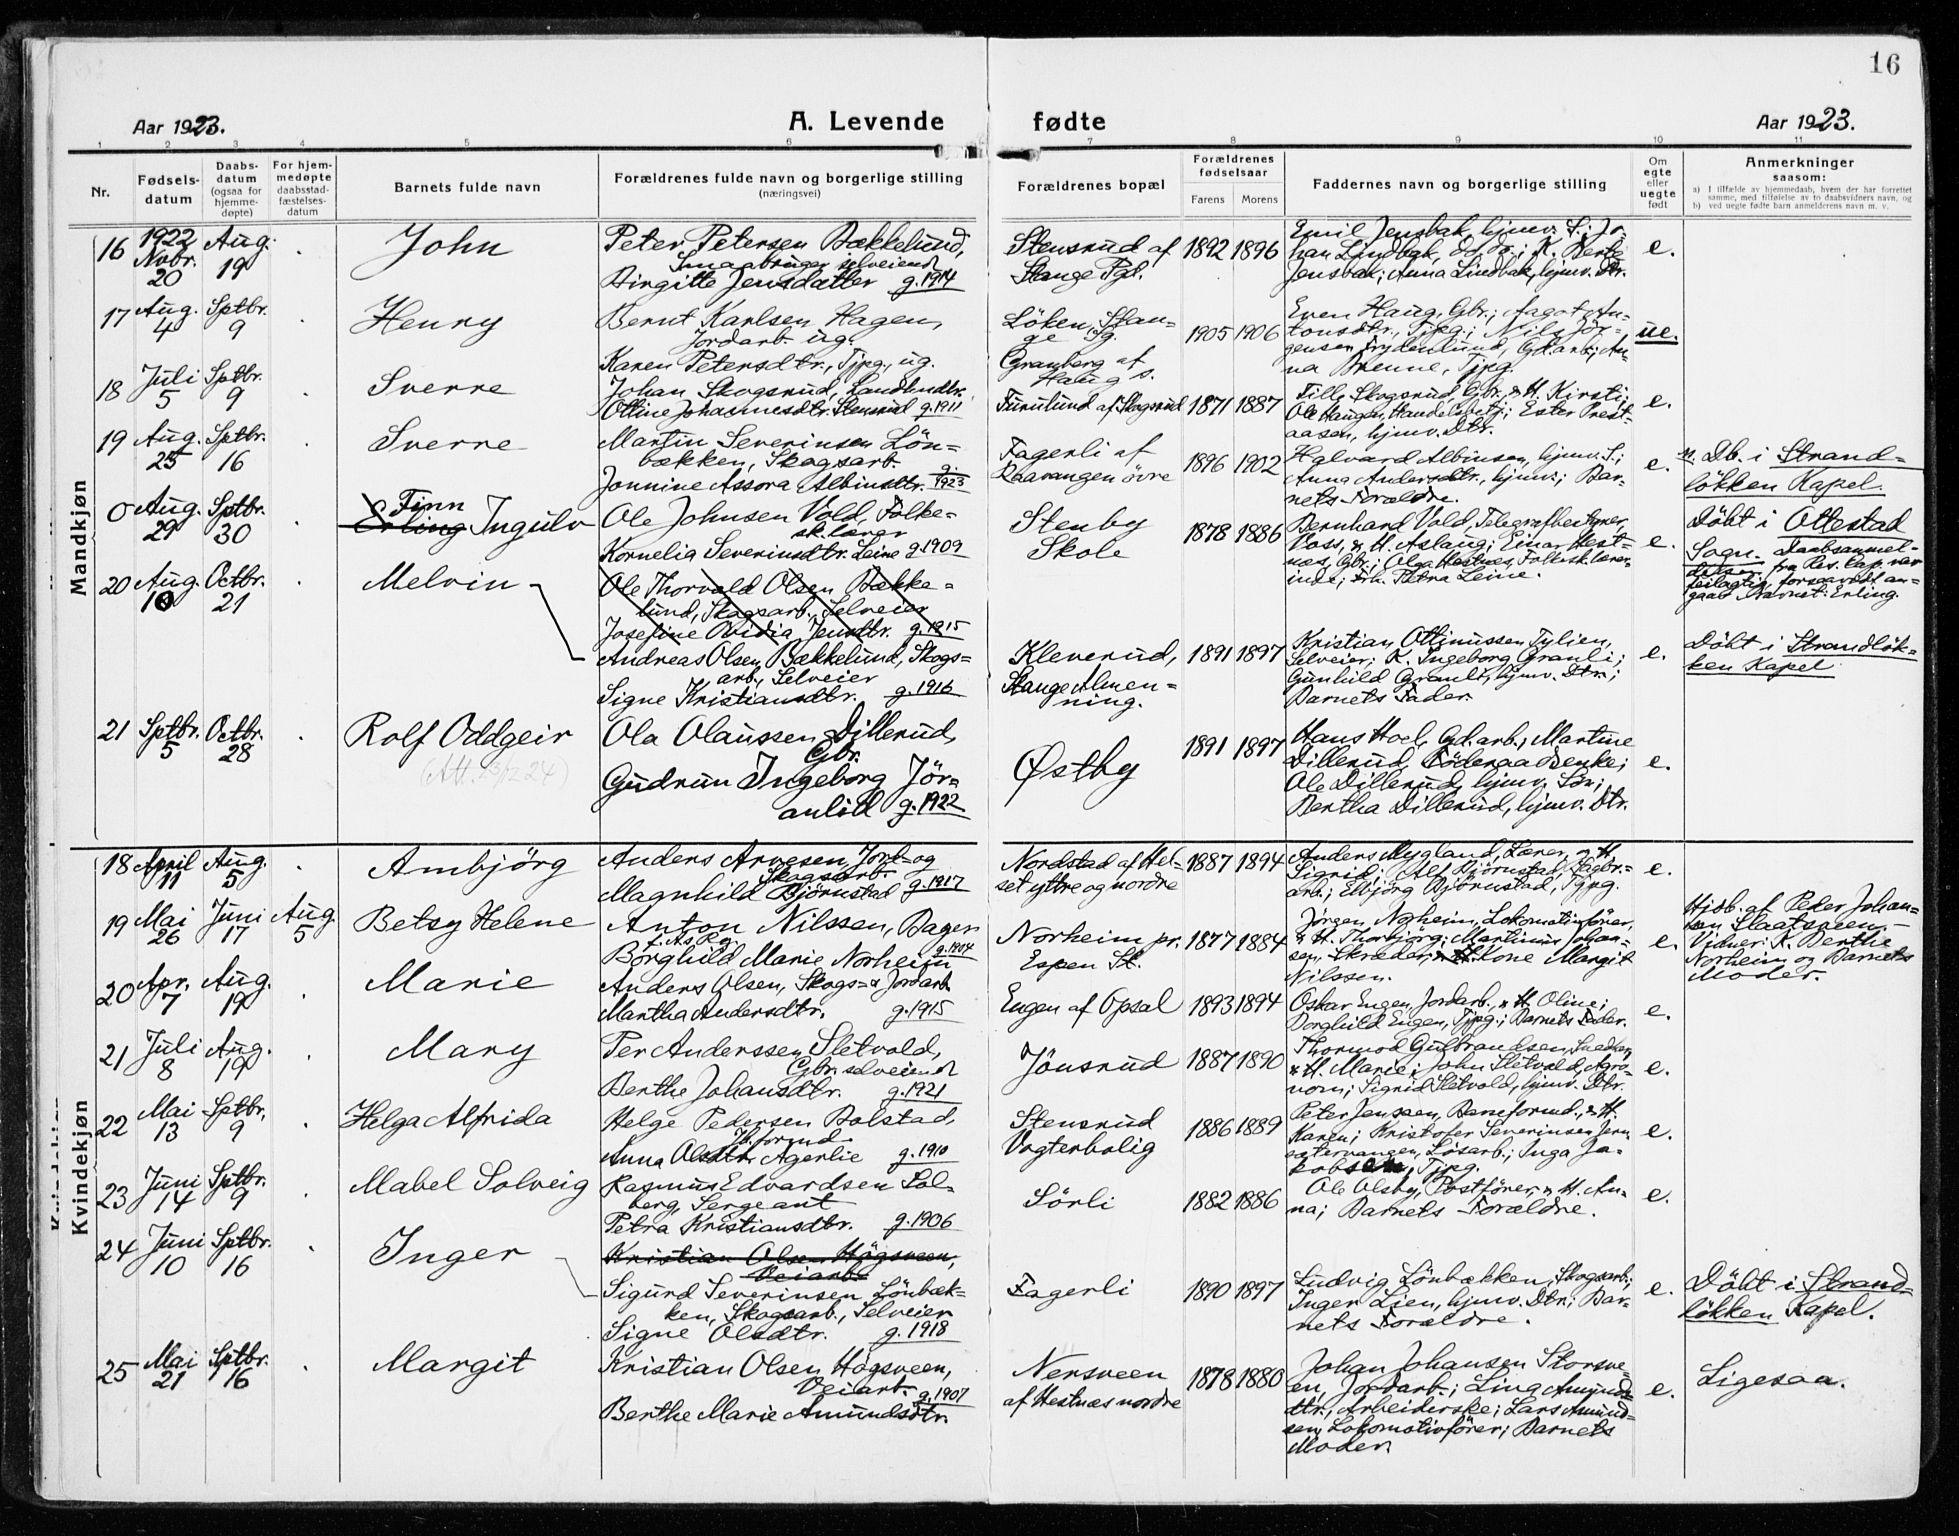 16
Aar 1923.
A. Levende
fødte
Aar 1923.
1 2 3 4 5 6 7 8 9 10 11
Nr.
Fødsels-
datum
Daabs-
datum
(ogsaa for
hjemme-
døpte)
For hjem-
medøpte
daabsstad-
fæstelses-
datum
Barnets fulde navn
Forældrenes fulde navn og borgerlige stilling
(næringsvei)
Forældrenes bopæl
Forældrenes
fødselsaar
Farens
Morens
Faddernes navn og borgerlige stilling
Om
egte
eller
uegte
født
Anmerkninger
saasom:
a) I tilfælde av hjemmedaab, hvem der har forrettet
samme, med tilføielse av to daabsvidners navn, og
b) ved uegte fødte barn anmelderens navn m. v.
Mandkjøn
16
1922
Novbr.
20
Aug.
19
John
Peter Petersen Bækkelund,
Smaabruger selveiend
Birgitte Jensdatter g. 1914
Stensrud af
Stange Pgd.
1892 1896
Emil Jensbak, hjmv. S.; Jo-
han Lindbak, do do; K. Berte
Jensbak; Anna Lindbak, hjmv. Dtr.
e.
17
Aug.
4
Sptbr.
9
Henry
Bernt Karlsen Hagen,
Jordarb. ug.
Karen Petersdtr., Tjpg., ug.
Löken, Stan-
ge Pg.
Granberg af
Haug s.
1905 1906
Even Haug, Gbr.; Aagot An-
tonsdtr., Tjpg.; Nils Jör-
gensen Frydenlund, Gd.arb.; An-
na Brenne, Tjpg.
ue.
18
Juli
5
Sptbr.
9
Sverre
Johan Skogsrud, Landhndlr.
Ottine Johannesdtr. Stensrud g. 1911
Furulund af Skogsrud
1871 1887
Tille Skogsrud, Gbr., & H. Kirsti;
Ole Haugen, Handelsbetj.; Ester Prest-
aasen, hjmv. Dtr.
e.
19
Aug.
25
Sptbr.
16
Sverre
Martin Severinsen Lön-
bækken, Skogsarb.
Jonnine Assora Albinsdtr. g. 1923
Fagerli af
Raavangen övre
1896 1902
Halvard Albinsen, hjmv. S.;
Anna Andersdtr., hjmv.; Bar-
nets Forældre.
e.
Db. i Strand-
lökken Kapel.
0
Aug.
29
Sptbr.
30
Finn
Erling Ingulv
Ole Johnsen Vold, Folke-
sk. lærer
Kornelia Severinsdtr. Leine g. 1909
Stenby
Skole
1878 1886
Bernhard Vold, Telegrafbestyrer,
Voss, & H. Aslaug; Einar Hest-
næs, Gbr.; Olga Hestnæs, Folkesk. lærer-
inde; Frk. Petra Leine.
e.
Döbt i Ottestad
Sogn. Daabsanmel-
delsen fra Res. Kap. var
feilagtig forsaavidt an-
gaar Navnet: Erling.
20
Aug.
10
Octbr.
21
Melvin
Ole Thorvald Olsen Bække-
lund, Skogsarb., Selveier
Josefine Ovidia Jensdtr. g. 1915
Andreas Olsen Bækkelund, Skogs-
arb., Selveier
Signe Kristiansdtr. g. 1916
Kleverud,
Stange Almen-
ning.
1891 1897
Kristian Ottinussen Tylien,
Selveier; K. Ingeborg Granli;
Gunhild Granli, hjmv. Dtr.;
Barnets Fader.
e.
Döbt i Strandlök-
ken Kapel
21
Sptbr.
5
Octbr.
28
Rolf Oddgeir
(Att. 23/12 24)
Ola Olaussen Dillerud,
Gbr.
Gudrun Ingeborg Jör-
anlid g. 1922
Østby
1891 1897
Hans Hoel, Gd. arb.; Martine
Dillerud, Föderaadsenke;
Ole Dillerud, hjmv. Sön;
Bertha Dillerud, hjmv. Dtr.
e.
Kvindekjøn
18
April
11
Aug.
5
Ambjörg
Anders Arnesen, Jord- og
Skogsarb.
Magnhild Björnstad g. 1917
Nordstad af Hel-
set yttre og nordre
1887 1894
Anders Mygland, Lærer, & H.
Sigrid; Alf Björnstad, Fagbr.-
arb.; Elbjörg Björnstad, Tjpg.
e.
19
Mai
26
Juni
17
Aug.
5
Betsy Helene
Anton Nilssen, Bager
Borghild Marie Norheim g. 1904
Norheim pr.
Espen St.
1877 1884
Jörgen Norheim, Lokomotivförer,
& H. Thorbjörg; Martinus Johan-
sen, Skræder, Kone Margit
Nilssen.
e.
Hjdb. af Peder Johan-
sen Slaatsveen.-
Vidner: K. Berthe
Norheim og Barnets
Moder.
20
Apr.
7
Aug.
12
Marie
Anders Olsen, Skogs- & Jordarb.
Martha Andersdtr. g. 1915
Engen af Opsal
1893 1894
Oskar Engen, Jordarb., & H. Oline;
Borghild Engen, Tjpg.; Barnets Fader.
e.
21
Juli
8
Aug.
19
Mary
Per Anderssen Sletvold,
Gbr. selveiend
Berthe Johansdtr. g. 1921
Jönsrud
1887 1890
Thormod Gulbrandsen, Snedker,
& H. Marie; John Sletvold, Agro-
nom; Sigrid Sletvold, hjmv. Dtr.
e.
22
Mai
13
Sptbr.
9
Helga Alfrida
Helge Pedersen Bolstad,
Jb. formd.
Anna Olsdtr. Agerlie g. 1910
Stensrud
Vogterbolig
1886 1889
Peter Jenssen, Baneformd., & H.
Karen; Kristofer Severinsen Jern-
sætervangen, Lösarb.; Inga Ja-
kobsen, Tjpg.
e.
23
Juni
14
Sptbr.
9
Mabel Solveig
Rasmus Edvardsen Sol-
berg, Sergeant
Petra Kristiansdtr. g. 1906
Sörli
1882 1886
Ole Olsby, Postförer, & H. An-
na; Barnets Forældre.
e.
24
Juni
10
Sptbr.
16
Inger
Kristian Olsen Högsveen,
Veiarb.
Sigurd Severinsen Lönbæk-
ken, Skogsarb., Selveier
Signe Olsdtr. g. 1918
Fagerli
1890 1897
Ludvig Lönbækken, Skogsarb.;
Inger Lien, hjmv. Dtr.; Bar-
nets Forældre.
e.
Döbt i Strand-
lökken Kapel.
25
Mai
21
Sptbr.
16
Margit
Kristian Olsen Högsveen,
Veiarb. g. 1907
Berthe Marie Amundsdtr.
Nersveen
af Hestnæs nordre
1878 1880
Johan Johansen Storsve-
en, Jordarb.; Lina Amunds-
dtr., Arbeiderske; Lars Amund-
sen, Lokomotivförer; Barnets
Moder.
e.
Ligesaa.